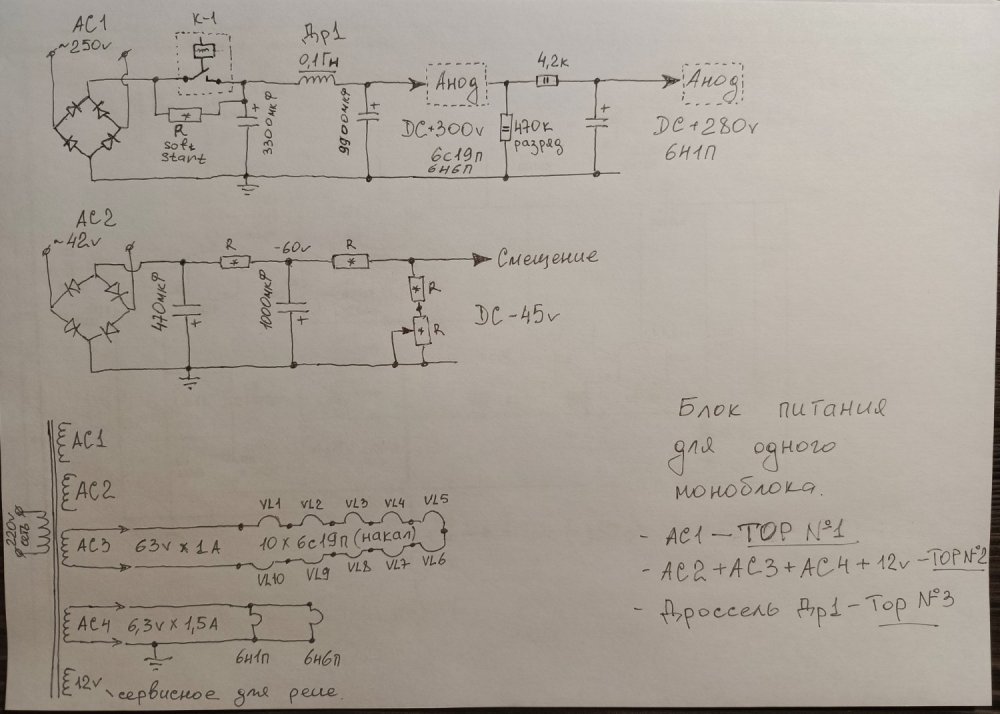 AC1
~250v
K-1
Др1
0,1Гн
R
soft
start
+
3300мкФ
9900мкФ
+
Анод
DC+300v
6с19п
6н6п
4,2к
470к
разряд
+
Анод
DC+280v
6Н1П
AC2
~42v
470мкФ
+
R
-60v
1000мкФ
+
R
R
R
Смещение
DC-45v
220v
сеть
AC1
AC2
AC3
63v * 1A
VL1 VL2 VL3 VL4 VL5
10 x 6с19п (накал)
VL10 VL9 VL8 VL7 VL6
AC4
6,3v * 1,5A
6н1п 6н6п
12v
сервисное для реле.
Блок питания
для одного
моноблока.
- AC1 - ТОР №1
- AC2 + AC3 + AC4 + 12v - ТОР №2
- Дроссель Др1 - Тор №3